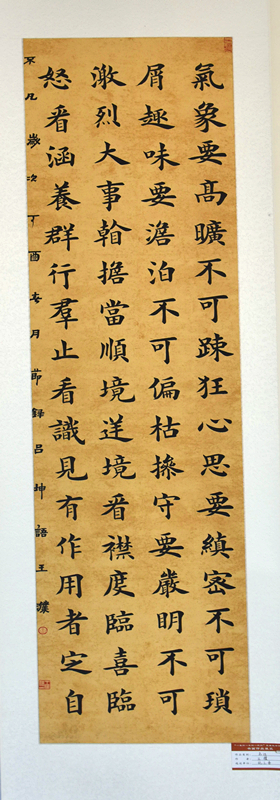 氣象要髙曠不可踈狂心思要縝宻不可瑣
屑趣味要澹泊不可偏枯操守要嚴明不可
激烈大事看擔當順境逆境看襟度臨喜臨
怒看涵養群行羣止看識見有作用者定自
不凡歲次丁酉年月節録吕坤語王